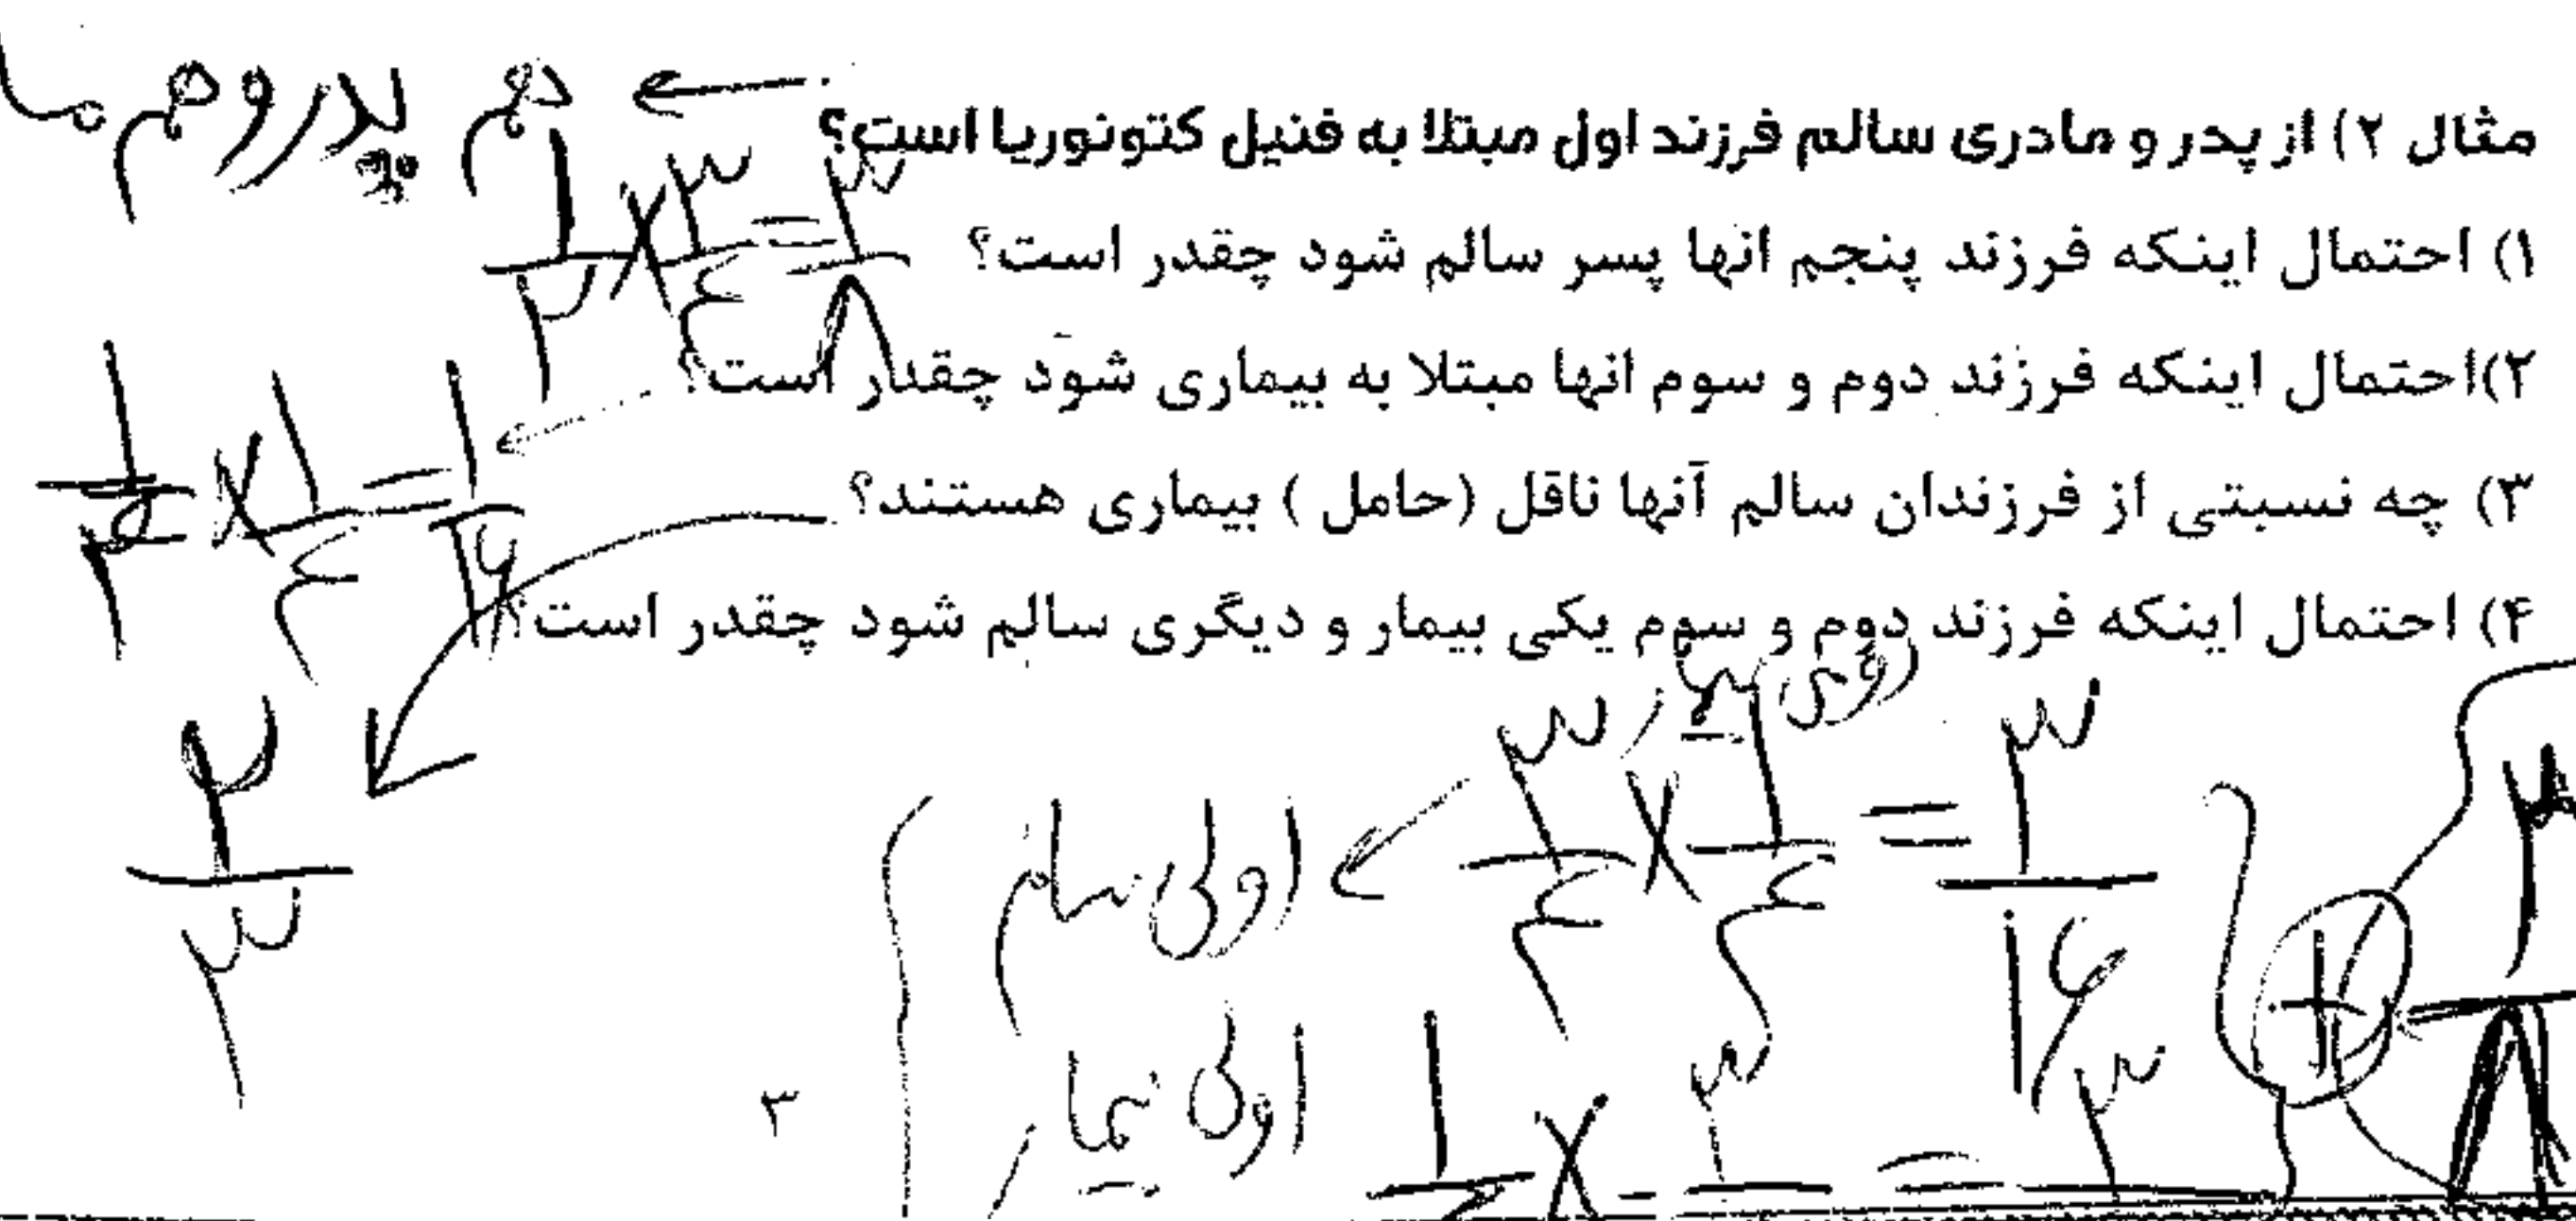 مثال ۲) از پدر و مادری سالم فرزند اول مبتلا به فنیل کتونوریا است؟
هم پدر و هم ما
۱) احتمال اینکه فرزند پنجم انها پسر سالم شود چقدر است؟
۱/۲ × ۳/۴ = ۳/۸
۲)احتمال اینکه فرزند دوم و سوم انها مبتلا به بیماری شود چقدر است؟
۱/۴ × ۱/۴ = ۱/۱۶
۳) چه نسبتی از فرزندان سالم آنها ناقل (حامل ) بیماری هستند؟
۲/۳
۴) احتمال اینکه فرزند دوم و سوم یکی بیمار و دیگری سالم شود چقدر است؟
اولی سالم ۳/۴ × ۱/۴ = ۳/۱۶
+ ۳/۸
اولی بیمار ۱ × ۳ = ۳
۳